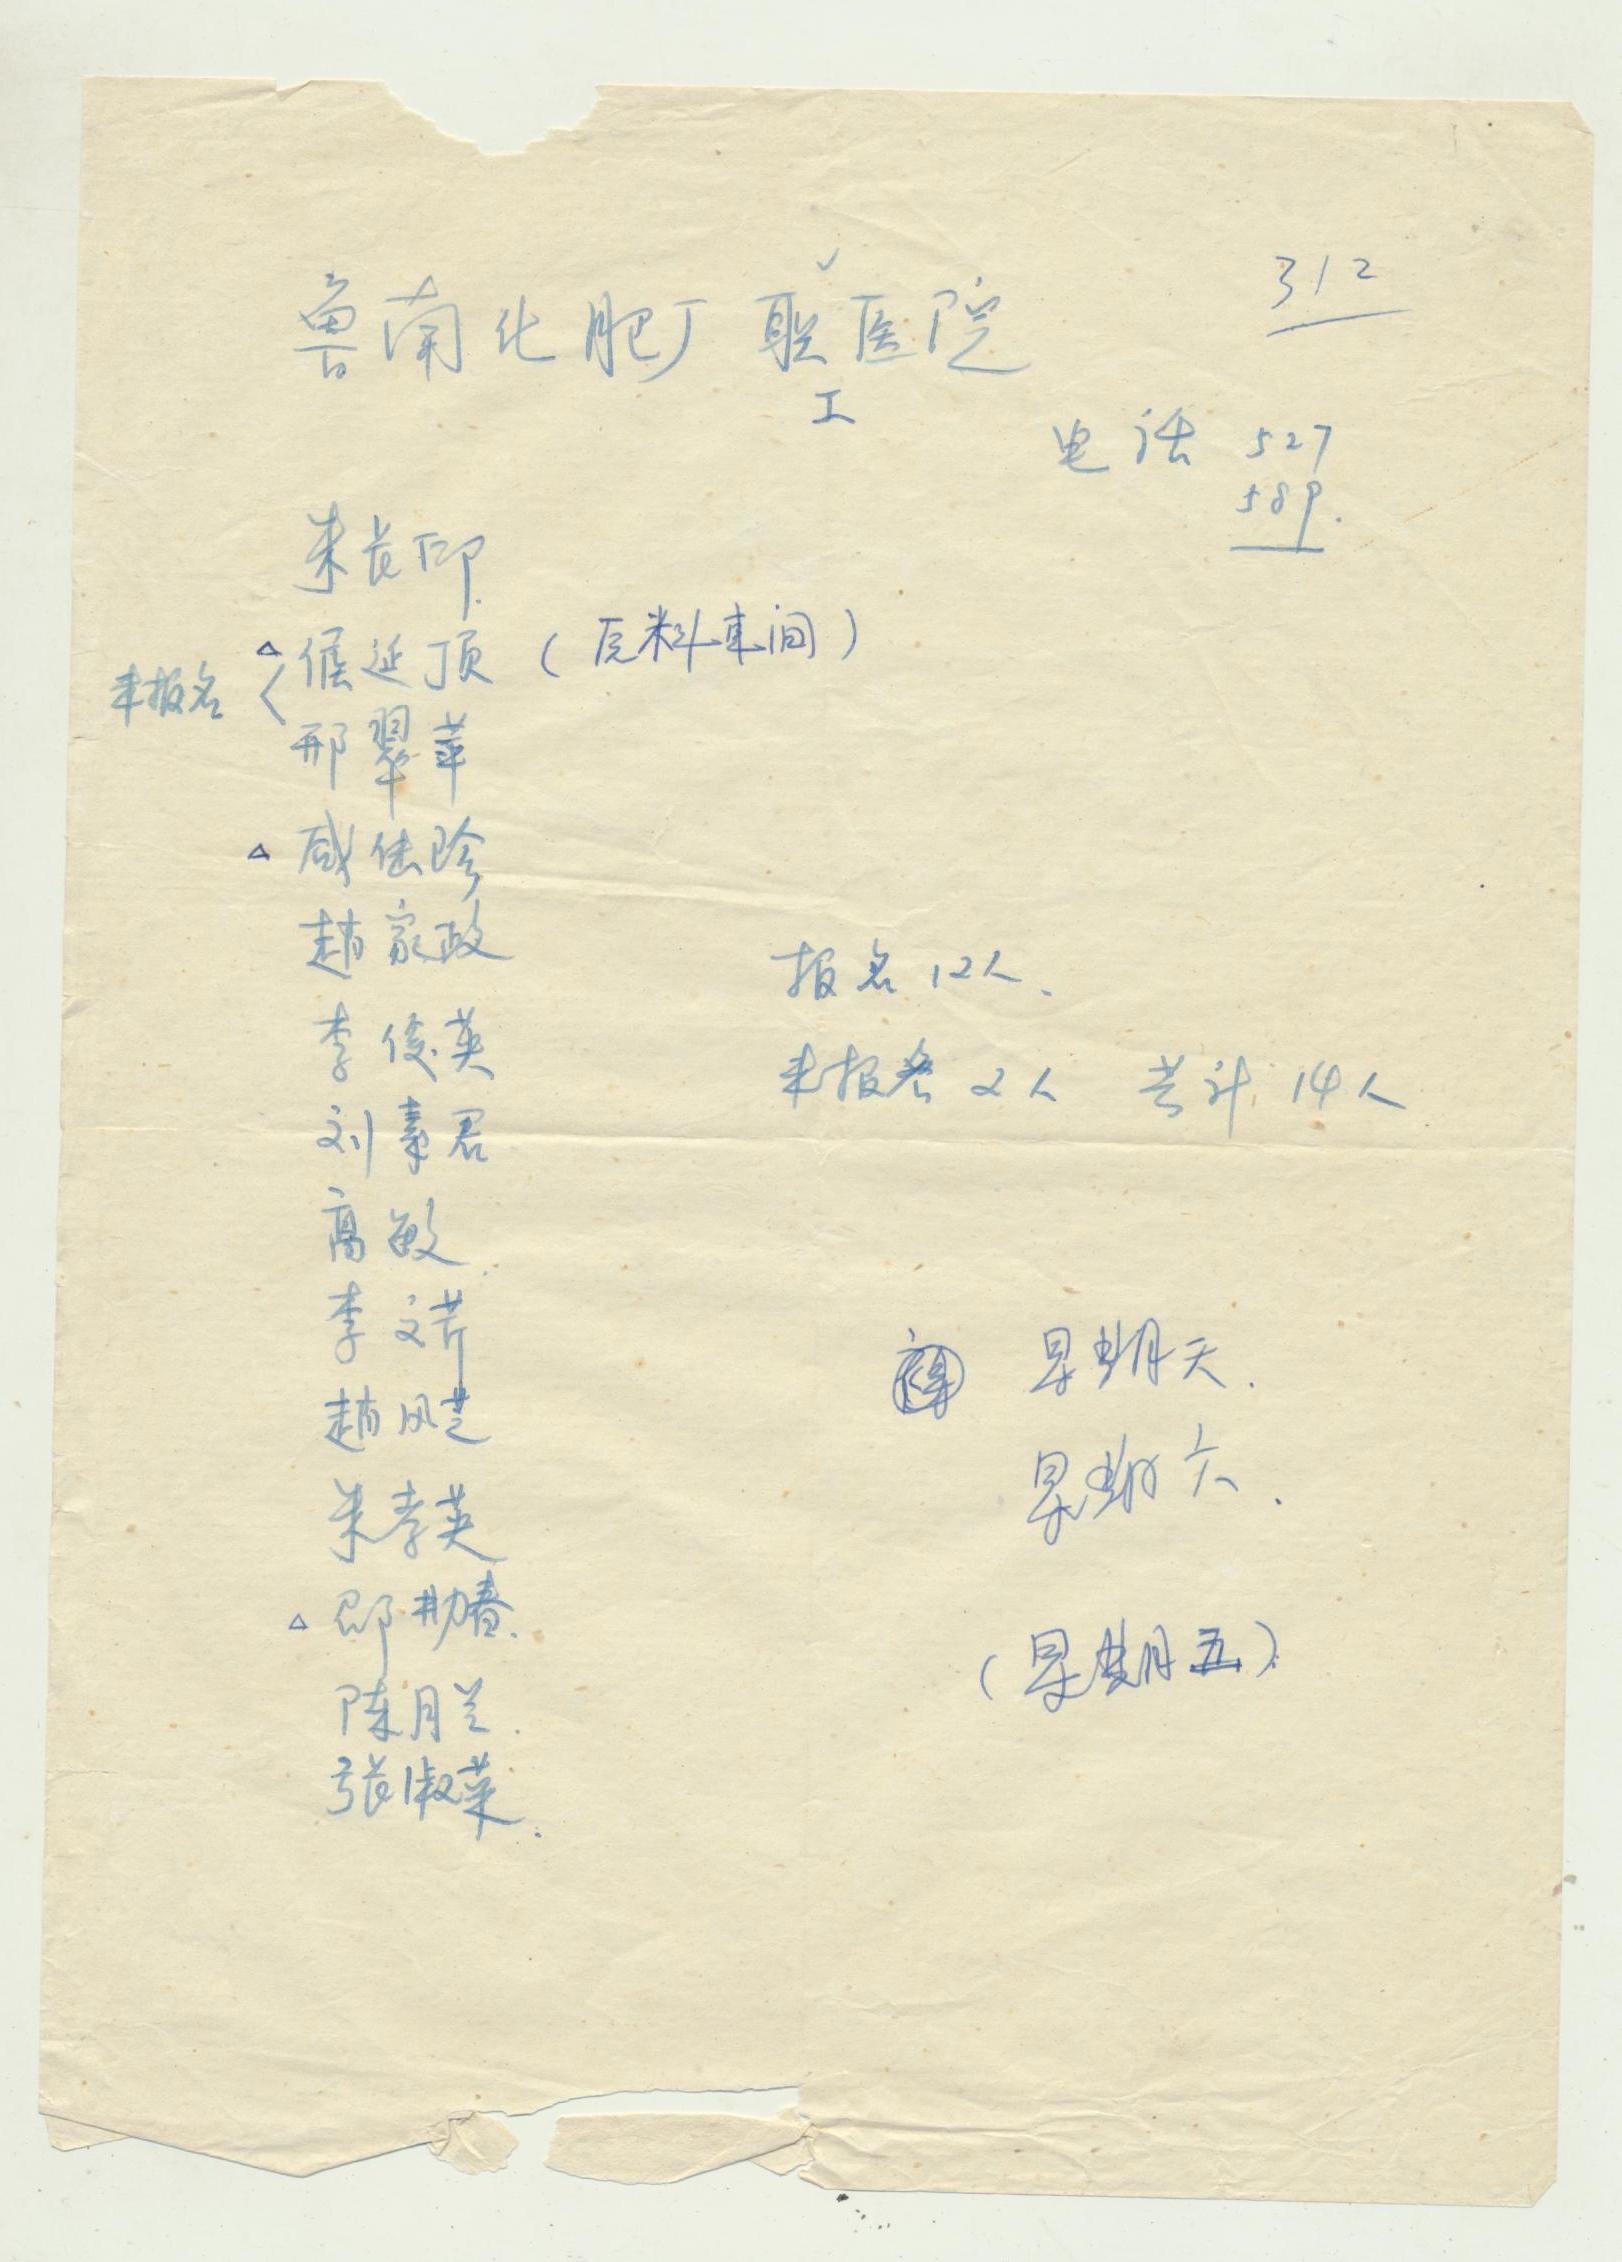 312
鲁南化肥厂职医院
工
电话 527
589.
朱长印.
△侯延顶(原料车间)
未报名
邢翠苹
△咸佳珍
赵家政
李俊英
刘素君
高敏
李文芹
赵风芝
朱孝英
△邵勤春.
陈月兰.
张淑菜.
报名12人、
未报名2人 共计14人
星期天.
星期六.
(星期五).